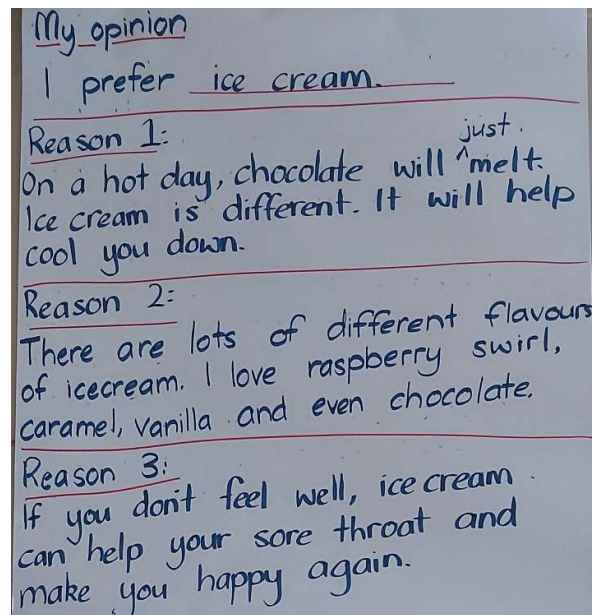 My opinion
I prefer ice cream.
Reason 1:
On a hot day, chocolate will ^just melt.
Ice cream is different. It will help
cool you down.
Reason 2:
There are lots of different flavours
of icecream. I love raspberry swirl,
caramel, vanilla and even chocolate.
Reason 3:
If you don't feel well, ice cream
can help your sore throat and
make you happy again.